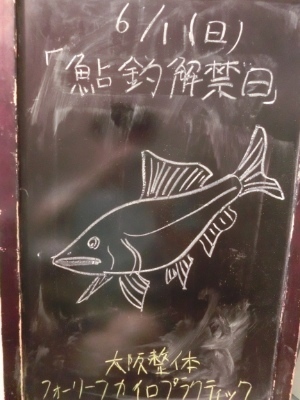 6/1(日)
「鮎釣解禁日」
大阪整体
フォーリーフカイロプラクティック